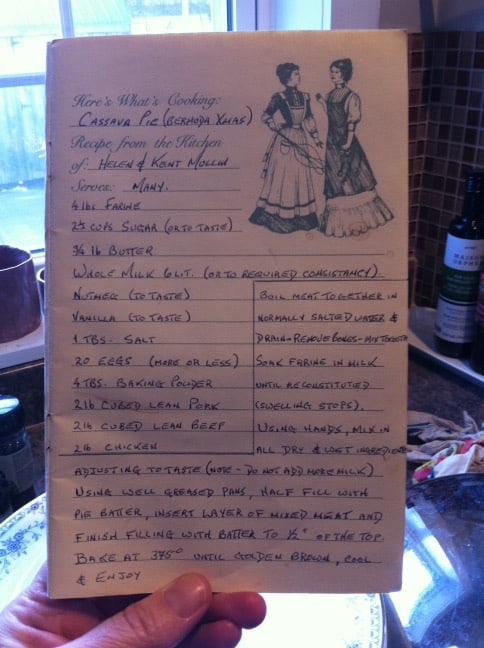 Here's What's Cooking:
CASSAVA PIE (BERMUDA XMAS)
Recipe from the Kitchen
of: HELEN & KENT MOLLIN
Serves: MANY.
4 lbs FARINE
2½ CUPS SUGAR (OR TO TASTE)
¾ lb BUTTER
WHOLE MILK 6 LIT. (OR TO REQUIRED CONSISTANCY).
NUTMEG (TO TASTE)
VANILLA (TO TASTE)
1 TBS. SALT
20 EGGS (MORE OR LESS)
4 TBS. BAKING POWDER
2 lb CUBED LEAN PORK
2 lb CUBED LEAN BEEF
2 lb CHICKEN
BOIL MEAT TOGETHER IN
NORMALLY SALTED WATER &
DRAIN - REMOVE BONES - MIX TOGETH
SOAK FARINE IN MILK
UNTIL RECONSTITUTED
(SWELLING STOPS).
USING HANDS, MIX IN
ALL DRY & WET INGREDIENTS
ADJUSTING TO TASTE (NOTE - DO NOT ADD MORE MILK)
USING WELL GREASED PANS, HALF FILL WITH
PIE BATTER, INSERT LAYER OF MIXED MEAT AND
FINISH FILLING WITH BATTER TO ½" OF THE TOP.
BAKE AT 375° UNTIL GOLDEN BROWN, COOL
& ENJOY
MAISON
ORPHÉE